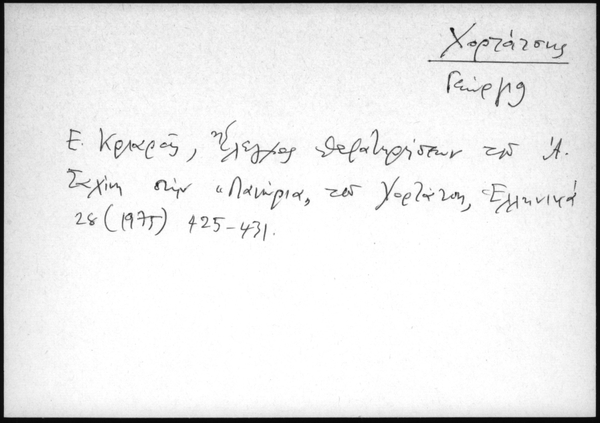 Χορτάτσης
Γεώργιος
Ε. Κριαρᾶς, Ἔλεγχος παρατηρήσεων τοῦ Ἀ.
Σαχίνη στὴν «Πανώρια» τοῦ Χορτάτση, Ἑλληνικά
28 (1975) 425-431.